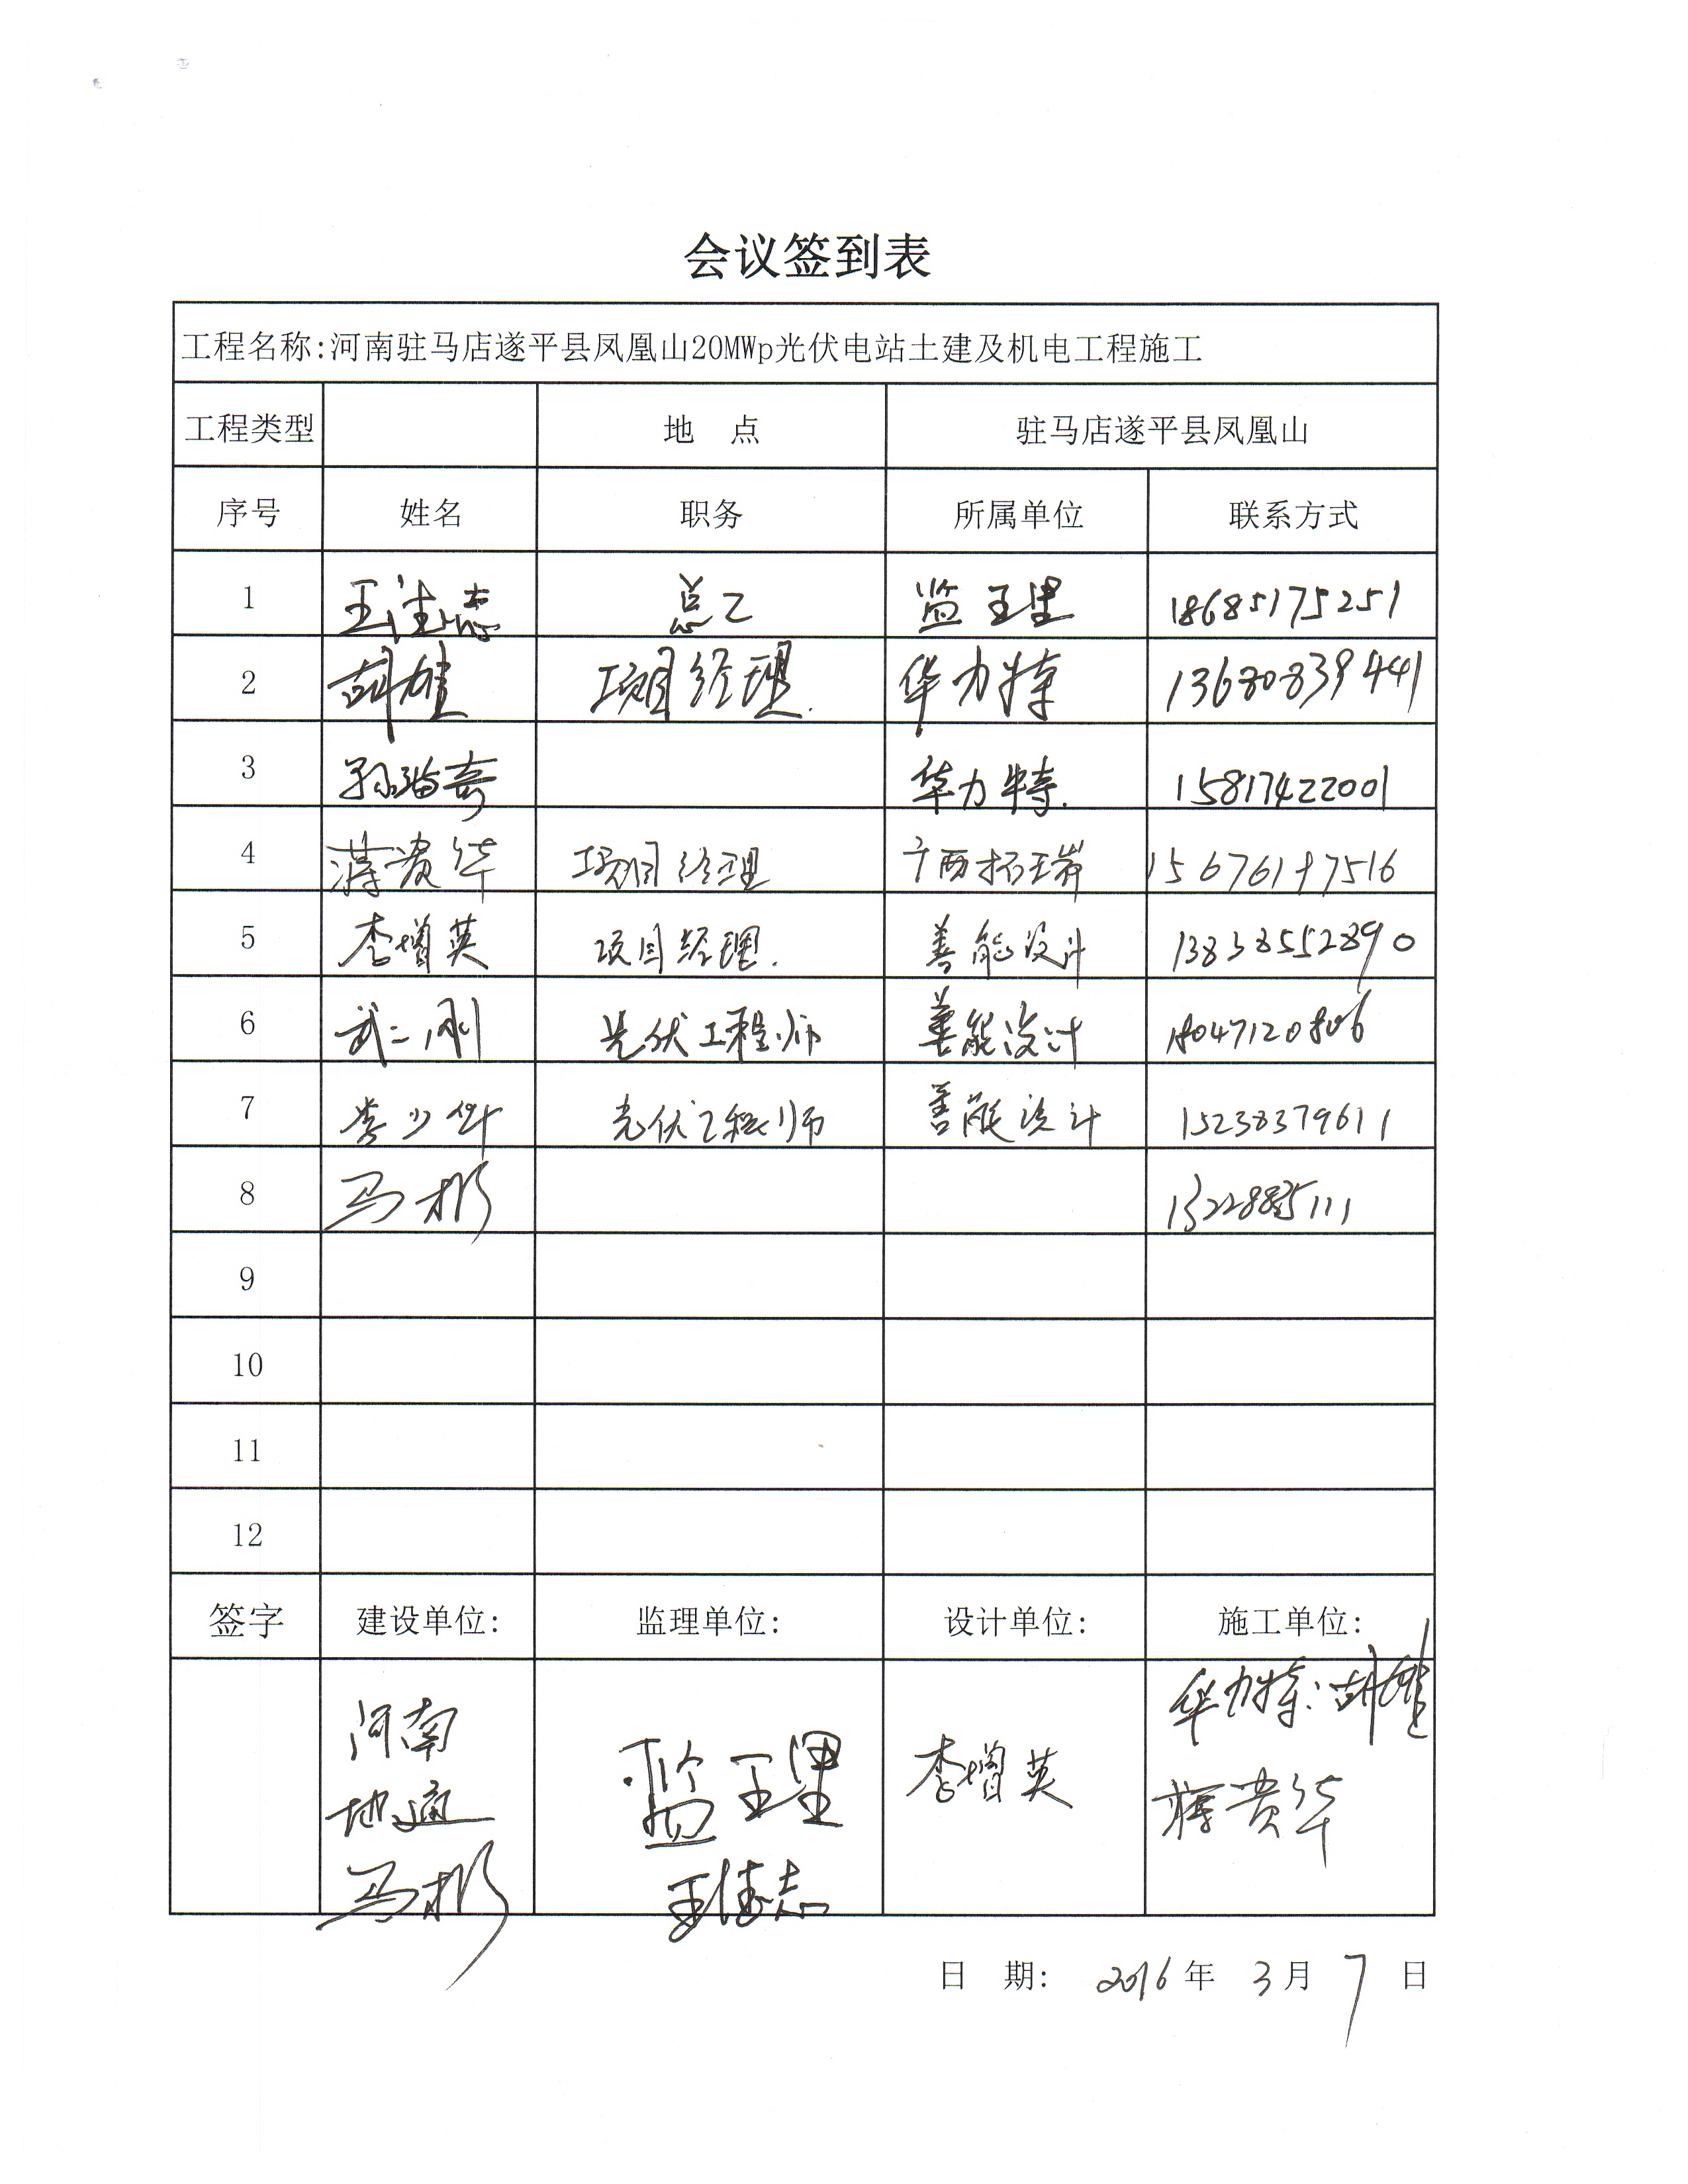 会议签到表
工程名称:河南驻马店遂平县凤凰山20MWp光伏电站土建及机电工程施工
工程类型 地 点 驻马店遂平县凤凰山
序号 姓名 职务 所属单位 联系方式
1 王佳志 总工 监理 18685175251
2 胡雄 项目经理. 华力特 13680839441
3 孙瑞奇 华力特. 15817422001
4 蒋贵华 项目经理 广西拓瑞 15676197516
5 李增英 项目经理. 善能设计 13838552890
6 武二刚 光伏工程师 善能设计 18047120806
7 李少华 光伏工程师 善能设计 15238379611
8 马彬
9
10
11
12
签字 建设单位: 监理单位: 设计单位: 施工单位:
河南
地通
马彬
监理
王佳志
李增英
华力特:胡雄
蒋贵华
日 期: 2016年 3月 7 日